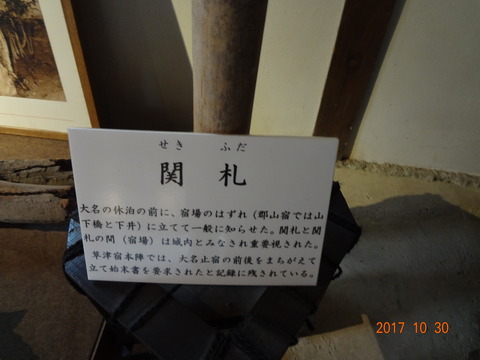 せき ふだ
関 札
大名の休泊の前に、宿場のはずれ（郡山宿では山
下橋と下井）に立てて一般に知らせた。関札と関
札の間（宿場）は城内とみなされ重要視された。
草津宿本陣では、大名止宿の前後をまちがえて
立て始末書を要求されたと記録に残されている。
2017 10 30